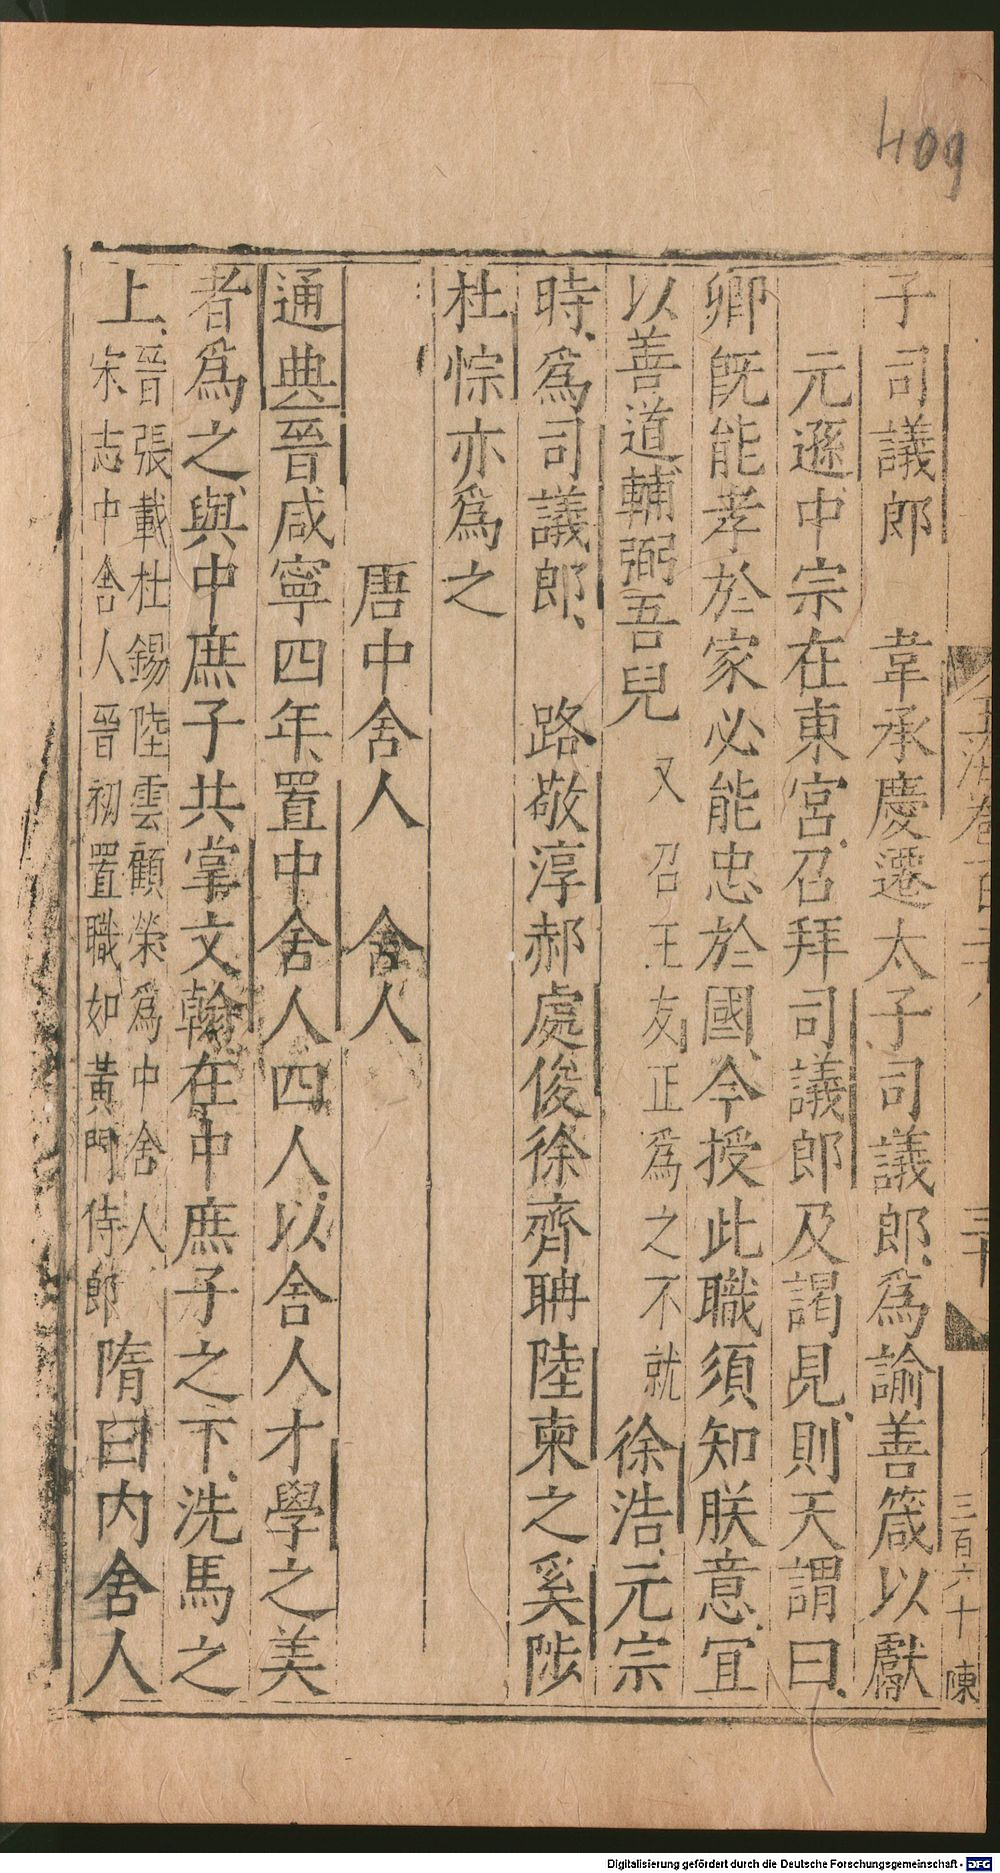 409
子司議郎　韋承慶遷太子司議郎為諭善箴以獻
元遜中宗在東宮召拜司議郎及謁見則天謂曰
卿既能孝於家必能忠於國今授此職須知朕意宜
以善道輔弼吾兒又召王友正為之不就徐浩元宗
時為司議郎　路敬淳郝處俊徐齊聃陸柬之奚陟
杜悰亦為之
唐中舍人　舍人
通典晉咸寧四年置中舍人四人以舍人才學之美
者為之與中庶子共掌文翰在中庶子之下洗馬之
上晉張載杜錫陸雲顧榮為中舍人
宋志中舍人晉初置職如黃門侍郎隋曰內舍人
三十
三百六十 陳
Digitalisierung gefördert durch die Deutsche Forschungsgemeinschaft - DFG